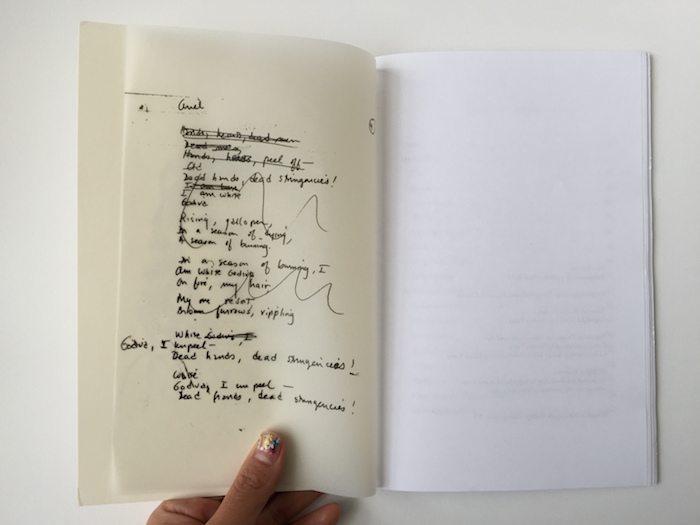 Ariel
hands, hearts, dead men
Dead men
Hands, hearts, peel off —
Old
Dead hands, dead stringencies!
I am white
Godiva
Rising, gallop
In a season of
A season of burning.
In a season of burning, I
Am White Godiva
On fire, my hair
My one resort,
Brown furrows, rippling
White Godiva I
Godiva, I unpeel —
Dead hands, dead stringencies!
White
Godiva, I unpeel —
Dead hands, dead stringencies!